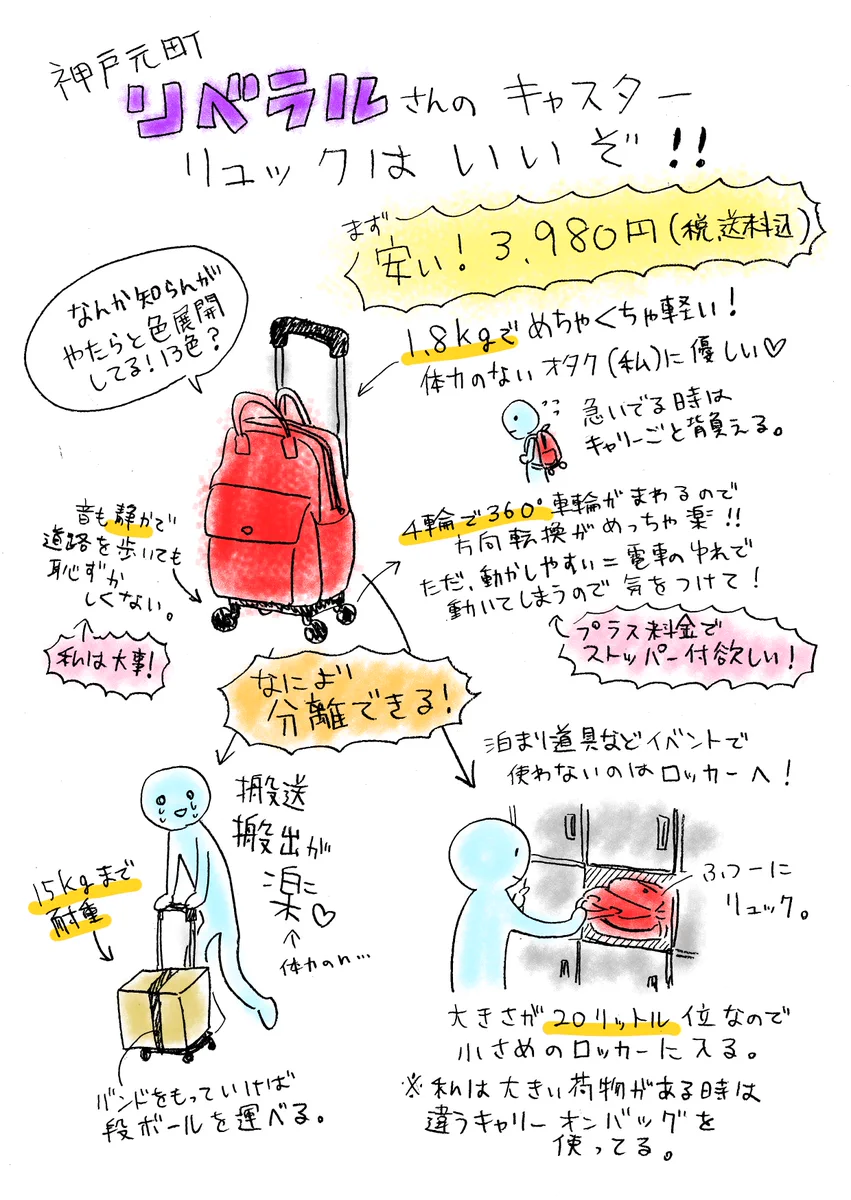 神戸元町
リベラルさんの キャスター
リュックは いいぞ!!
まず
安い! 3,980円(税,送料込)
なんか知らんが
やたらと色展開
してる!13色?
1.8kgで めちゃくちゃ軽い!
体力のない オタク(私)に優しい♡
急いでる時は
キャリーごと背負える。
音も静かで
道路を歩いても
恥ずか
しくない。
私は大事!
4輪で360°車輪がまわるので
方向転換がめっちゃ楽!!
ただ、動かしやすい=電車のゆれで
動いてしまうので 気をつけて!
プラス料金で
ストッパー付欲しい!
なにより
分離できる!
搬送
搬出が
楽に♡
体力のn…
15kgまで
耐重
バンドをもっていけば
段ボールを運べる。
泊まり道具などイベントで
使わないのはロッカーへ!
ふつーに
リュック。
大きさが 20リットル 位なので
小さめのロッカーに入る。
※私は大きい荷物がある時は
違うキャリーオンバッグを
使ってる。